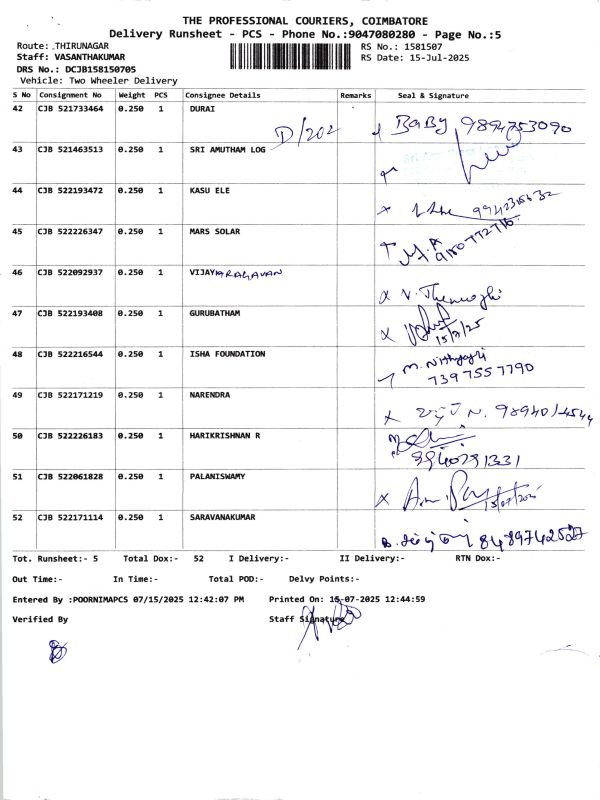 THE PROFESSIONAL COURIERS, COIMBATORE
Delivery Runsheet - PCS - Phone No.:9047080280 - Page No.:5
Route: THIRUNAGAR RS No.: 1581507
Staff: VASANTHAKUMAR RS Date: 15-Jul-2025
DRS No.: DCJB158150705
Vehicle: Two Wheeler Delivery
S No Consignment No Weight PCS Consignee Details Remarks Seal & Signature
42 CJB 521733464 0.250 1 DURAI D/202 BaBy 9894753090
43 CJB 521463513 0.250 1 SRI AMUTHAM LOG
44 CJB 522193472 0.250 1 KASU ELE
45 CJB 522226347 0.250 1 MARS SOLAR
46 CJB 522092937 0.250 1 VIJAYARAGAVAN
47 CJB 522193408 0.250 1 GURUBATHAM 15/7/25
48 CJB 522216544 0.250 1 ISHA FOUNDATION 7397557790
49 CJB 522171219 0.250 1 NARENDRA
50 CJB 522226183 0.250 1 HARIKRISHNAN R
51 CJB 522061828 0.250 1 PALANISWAMY
52 CJB 522171114 0.250 1 SARAVANAKUMAR
Tot. Runsheet:- 5 Total Dox:- 52 I Delivery:- II Delivery:- RTN Dox:-
Out Time:- In Time:- Total POD:- Delvy Points:-
Entered By :POORNIMAPCS 07/15/2025 12:42:07 PM Printed On: 15-07-2025 12:44:59
Verified By Staff Signature